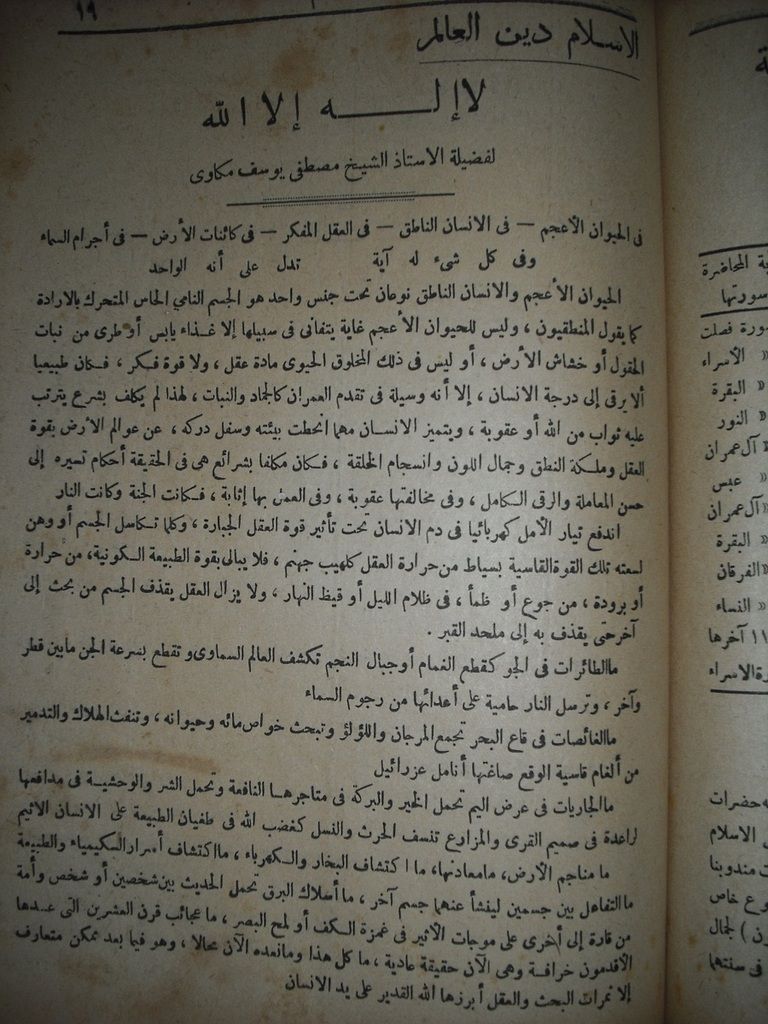 ١٩
الاسلام دين العالم
لا إلـــه إلا الله
لفضيلة الاستاذ الشيخ مصطفى يوسف مكاوى
فى الحيوان الأعجم — فى الانسان الناطق — فى العقل المفكر — فى كائنات الأرض — فى أجرام السماء
وفى كل شىء له آية تدل على أنه الواحد
الحيوان الأعجم والانسان الناطق نوعان تحت جنس واحد هو الجسم النامي الحاس المتحرك بالارادة
كما يقول المنطقيون ، وليس للحيوان الأعجم غاية يتفانى فى سبيلها إلا غذاء يابس أو طرى من نبات
الحقول أو خشاش الأرض ، أو ليس فى ذلك المخلوق الحيوى مادة عقل ، ولا قوة فكر ، فكان طبيعيا
ألا يرقى إلى درجة الانسان ، إلا أنه وسيلة فى تقدم العمران كالجماد والنبات ، لهذا لم يكلف بشرع يترتب
عليه ثواب من الله أو عقوبة ، ويتميز الانسان مهما انحطت بيئته وسفل دركه ، عن عوالم الأرض بقوة
العقل وملكة النطق وجمال اللون وانسجام الخلقة ، فكان مكلفا بشرائع هى فى الحقيقة أحكام تسيره إلى
حسن المعاملة والرقى الكامل ، وفى مخالفتها عقوبة ، وفى العمل بها إثابة ، فكانت الجنة وكانت النار
اندفع تيار الأمل كهربائيا فى دم الانسان تحت تأثير قوة العقل الجبارة ، وكلما تكاسل الجسم أو وهن
لسعته تلك القوة القاسية بسياط من حرارة العقل كلهيب جهنم ، فلا يبالى بقوة الطبيعة الكونية ، من حرارة
أو برودة ، من جوع أو ظمأ ، فى ظلام الليل أو قيظ النهار ، ولا يزال العقل يقذف الجسم من بحث إلى
آخر حتى يقذف به إلى ملحد القبر .
ما الطائرات فى الجو كقطع الغمام أو جبال النجم تكشف العالم السماوى وتقطع بسرعة الجن ما بين قطر
وآخر ، وترسل النار حامية على أعدائها من رجوم السماء
ما الغائصات فى قاع البحر تجمع المرجان واللؤلؤ وتبحث خواص مائه وحيوانه ، وتنفث الهلاك والتدمير
من ألغام قاسية الوقع صاغتها أنامل عزرائيل
ما الجاريات فى عرض اليم تحمل الخير والبركة فى متاجرها النافعة وتحمل الشر والوحشية فى مدافعها
راعدة فى صميم القرى والمزارع تنسف الحرث والنسل كغضب الله فى طغيان الطبيعة على الانسان الأثيم
ما مناجم الأرض ، ما معادنها ، ما اكتشاف البخار والكهرباء ، ما اكتشاف أسرار الكيمياء والطبيعة
ما التفاعل بين جسمين لينشأ عنهما جسم آخر ، ما أسلاك البرق تحمل الحديث بين شخصين أو شخص وأمة
من قارة إلى أخرى على موجات الأثير فى غمزة الكف أو لمح البصر ، ما عجائب قرن العشرين التى عدها
الأقدمون خرافة وهى الآن حقيقة عادية ، ما كل هذا وما نعده الآن محالا ، وهو فيما بعد ممكن متعارف
إلا ثمرات البحث والعقل أبرزها الله القدير على يد الانسان
ية المحاضرة
سورتها
سورة فصلت
« الأسراء
« البقرة
« النور
« آل عمران
« عبس
« آل عمران
« البقرة
« الفرقان
« النساء
١١ آخرها
رة الاسراء
حضرات
الاسلام
مندوبنا
ع خاص
ون ) لجمال
فى سنتها